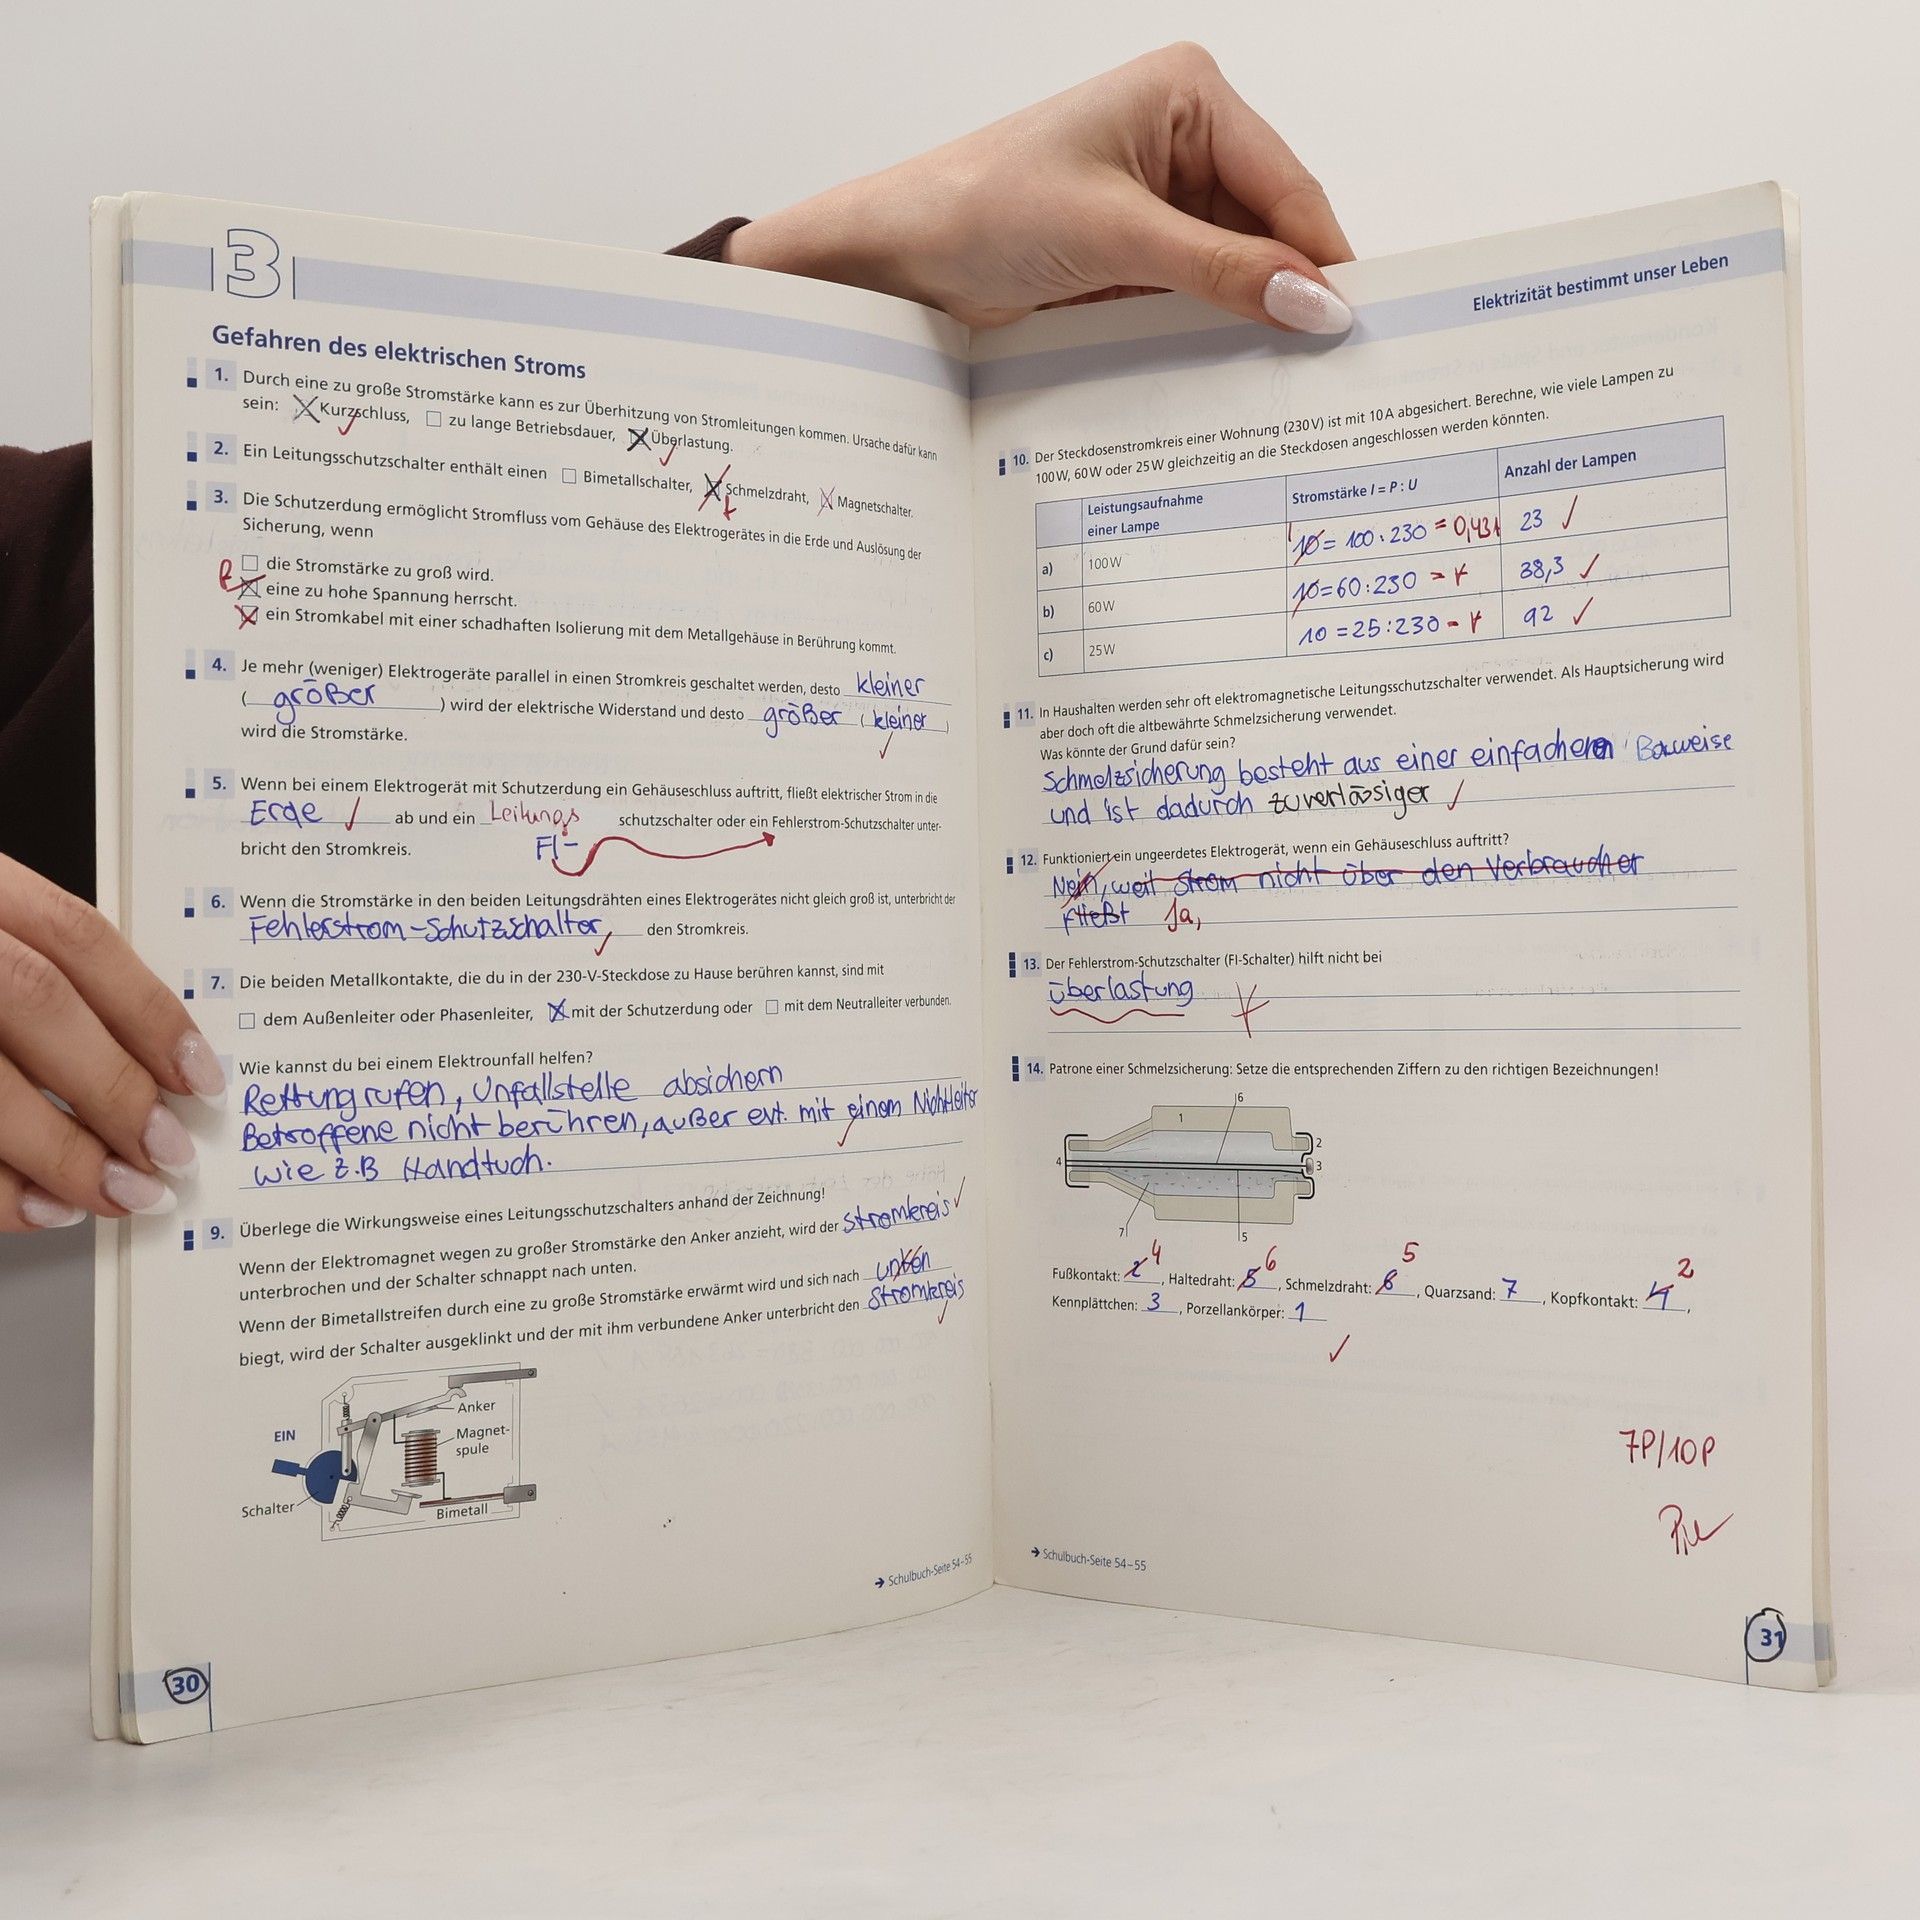 3
Gefahren des elektrischen Stroms
1. Durch eine zu große Stromstärke kann es zur Überhitzung von Stromleitungen kommen. Ursache dafür kann
sein: Kurzschluss, zu lange Betriebsdauer, Überlastung.
2. Ein Leitungsschutzschalter enthält einen Bimetallschalter, Schmelzdraht, Magnetschalter.
3. Die Schutzerdung ermöglicht Stromfluss vom Gehäuse des Elektrogerätes in die Erde und Auslösung der
Sicherung, wenn
die Stromstärke zu groß wird.
eine zu hohe Spannung herrscht.
ein Stromkabel mit einer schadhaften Isolierung mit dem Metallgehäuse in Berührung kommt.
4. Je mehr (weniger) Elektrogeräte parallel in einen Stromkreis geschaltet werden, desto kleiner
(größer) wird der elektrische Widerstand und desto größer (kleiner)
wird die Stromstärke.
5. Wenn bei einem Elektrogerät mit Schutzerdung ein Gehäuseschluss auftritt, fließt elektrischer Strom in die
Erde ab und ein Leitungs schutzschalter oder ein Fehlerstrom-Schutzschalter unter-
bricht den Stromkreis. FI-
6. Wenn die Stromstärke in den beiden Leitungsdrähten eines Elektrogerätes nicht gleich groß ist, unterbricht der
Fehlerstrom-Schutzschalter, den Stromkreis.
7. Die beiden Metallkontakte, die du in der 230-V-Steckdose zu Hause berühren kannst, sind mit
dem Außenleiter oder Phasenleiter, mit der Schutzerdung oder mit dem Neutralleiter verbunden.
Wie kannst du bei einem Elektrounfall helfen?
Rettung rufen, Unfallstelle absichern
Betroffene nicht berühren, außer evt. mit einem Nichtleiter
wie z.B Handtuch.
9. Überlege die Wirkungsweise eines Leitungsschutzschalters anhand der Zeichnung!
Wenn der Elektromagnet wegen zu großer Stromstärke den Anker anzieht, wird der Stromkreis
unterbrochen und der Schalter schnappt nach unten.
Wenn der Bimetallstreifen durch eine zu große Stromstärke erwärmt wird und sich nach unten
biegt, wird der Schalter ausgeklinkt und der mit ihm verbundene Anker unterbricht den Stromkreis
Anker
EIN
Magnet-
spule
Schalter
Bimetall
→ Schulbuch-Seite 54–55
30
Elektrizität bestimmt unser Leben
10. Der Steckdosenstromkreis einer Wohnung (230 V) ist mit 10 A abgesichert. Berechne, wie viele Lampen zu
100 W, 60 W oder 25 W gleichzeitig an die Steckdosen angeschlossen werden könnten.
Leistungsaufnahme einer Lampe Stromstärke I = P : U Anzahl der Lampen
a) 100 W 10 = 100 : 230 = 0,43A 23
b) 60 W 10 = 60 : 230 38,3
c) 25 W 10 = 25 : 230 92
11. In Haushalten werden sehr oft elektromagnetische Leitungsschutzschalter verwendet. Als Hauptsicherung wird
aber doch oft die altbewährte Schmelzsicherung verwendet.
Was könnte der Grund dafür sein?
Schmelzsicherung besteht aus einer einfacheren Bauweise
und ist dadurch zuverlässiger
12. Funktioniert ein ungeerdetes Elektrogerät, wenn ein Gehäuseschluss auftritt?
Nein, weil Strom nicht über den Verbraucher
fließt Ja,
13. Der Fehlerstrom-Schutzschalter (FI-Schalter) hilft nicht bei
überlastung
14. Patrone einer Schmelzsicherung: Setze die entsprechenden Ziffern zu den richtigen Bezeichnungen!
6
1
2
4 3
7 5
4 6 5 2
Fußkontakt: 2, Haltedraht: 5, Schmelzdraht: 6, Quarzsand: 7, Kopfkontakt: 4,
Kennplättchen: 3, Porzellankörper: 1
7P/10P
→ Schulbuch-Seite 54–55
31